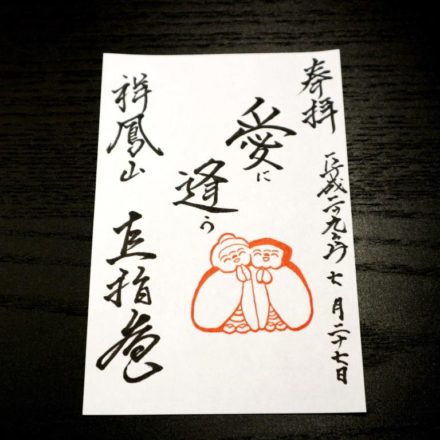 奉拝
平成二九年七月二十七日
愛に
逢う
祥鳳山
直指庵